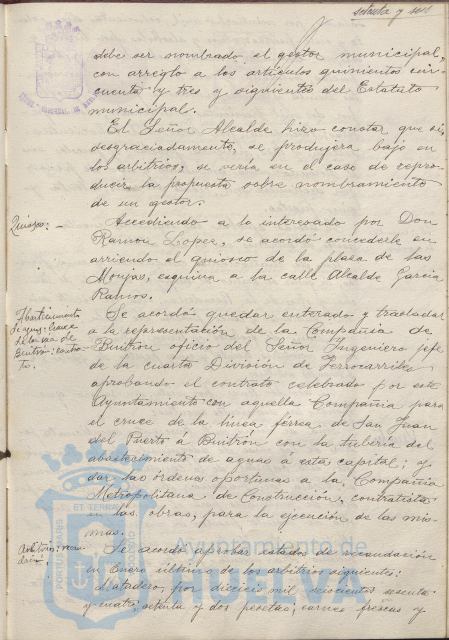 setenta y seis
debe ser nombrado el gestor municipal,
con arreglo a los artículos quinientos cin-
cuenta y tres y siguientes del Estatuto
municipal.
El Señor Alcalde hizo constar que si,
desgraciadamente, se produjera baja en
los arbitrios, se vería en el caso de repro-
ducir la propuesta sobre nombramiento
de un gestor.
Quiosco: -
Accediendo a lo interesado por Don
Ramon Lopez, se acordó concederle en
arriendo el quiosco de la plaza de las
Monjas, esquina a la calle Alcalde Garcia
Ramos.
Abastecimiento
de aguas: Cruce
de la vía de
Buitrón: contra-
to.
Se acordó quedar enterado y trasladar
a la representación de la Compañia de
Buitron oficio del Señor Ingeniero jefe
de la cuarta División de Ferrocarriles
aprobando el contrato celebrado por este
Ayuntamiento con aquella Compañia para
el cruce de la linea férrea de San Juan
del Puerto á Buitrón con la tubería del
abastecimiento de aguas á esta capital; y
dar las órdenes oportunas a la Compañia
Metropolitana de Construcción, contratista
en las obras, para la ejecución de las mis-
mas.
Arbitrios: recau-
dación
Se acordó aprobar estados de recaudación
en Enero último de los arbitrios siguientes:
Matadero, por diecieis mil seiscientos sesenta
y cuatro setenta y dos pesetas; carnes frescas y
Ayuntamiento de
HUELVA